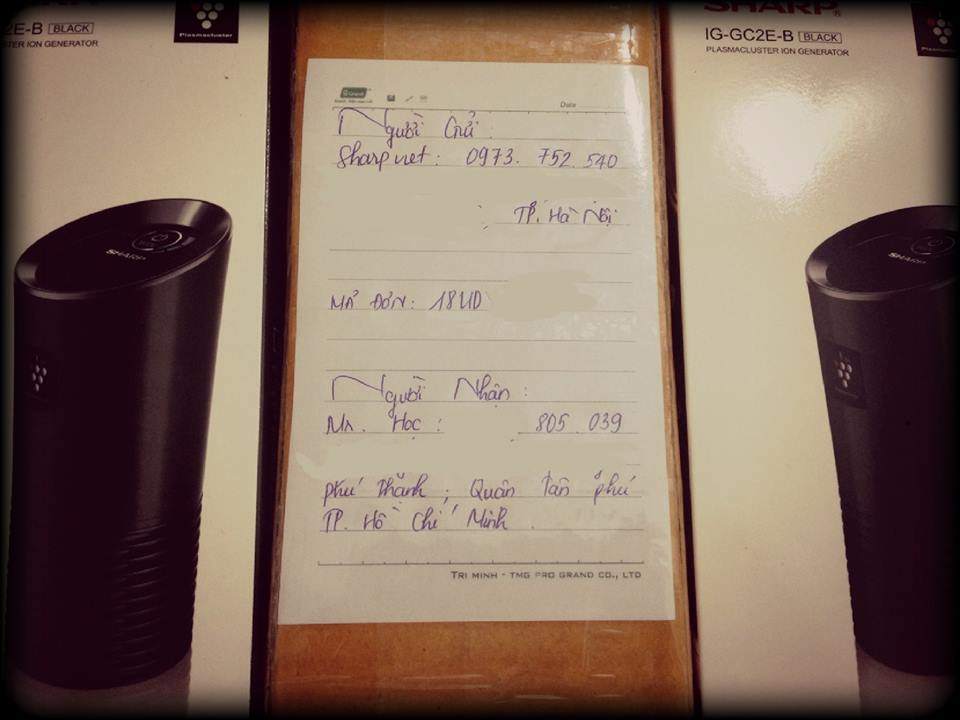 2E-B BLACK
STER ION GENERATOR
Plasmacluster
SHARP
Grand
Date
Người Gửi:
Sharp viet: 0973. 752. 540
, TP. Hà Nội
MÃ ĐƠN: 18UD
Người Nhận:
Mr. Học: 805.039
phú Thạnh; Quận Tân phú
TP. Hồ Chí Minh.
TRI MINH - TMG PRO GRAND CO., LTD
SHARP
IG-GC2E-B BLACK
PLASMACLUSTER ION GENERATOR
Plasmacluster
SHARP